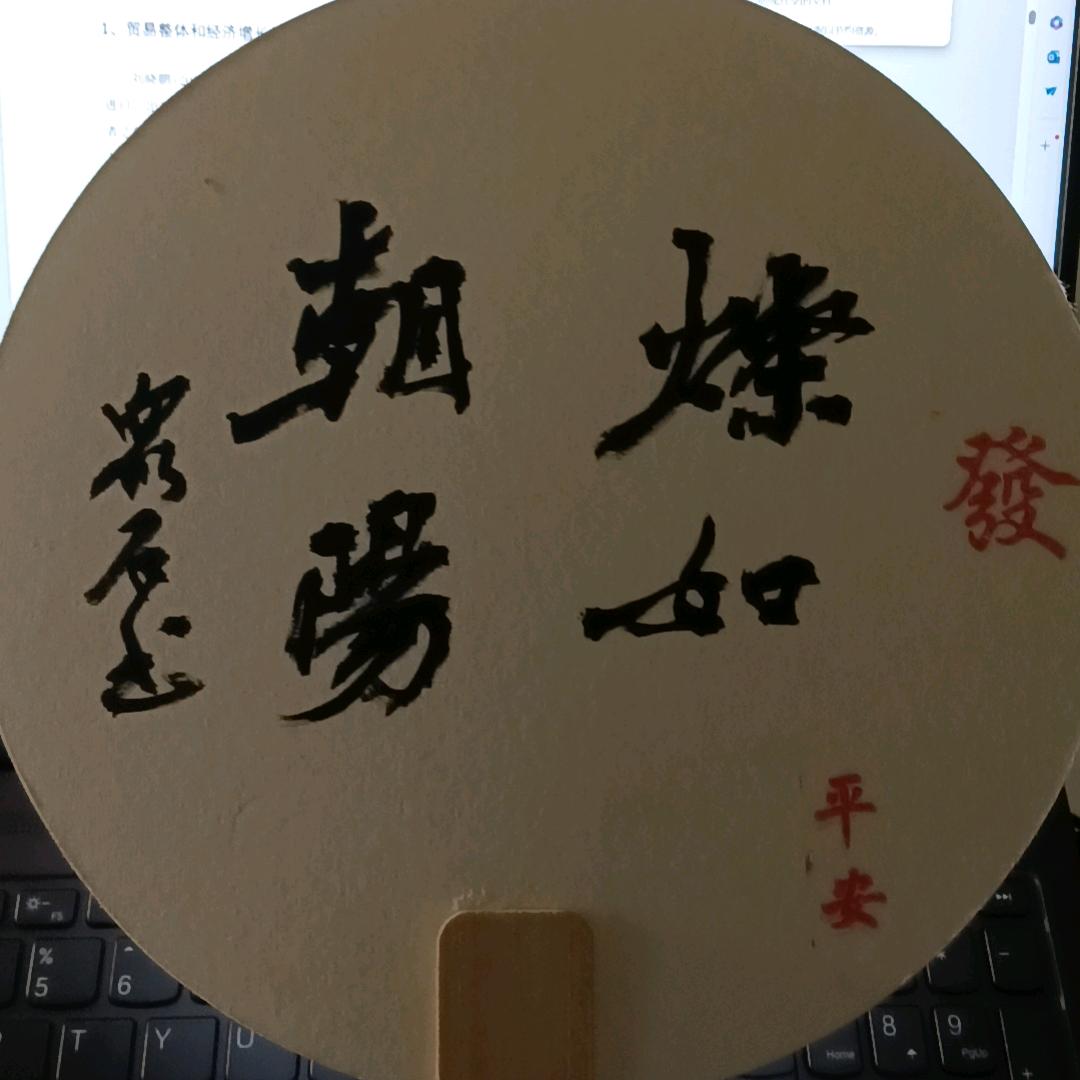 1、贸易整体和经济增
發
燦如
朝陽
石书
平安
F5
% 5
6
T Y U
8 9
Home PgUp